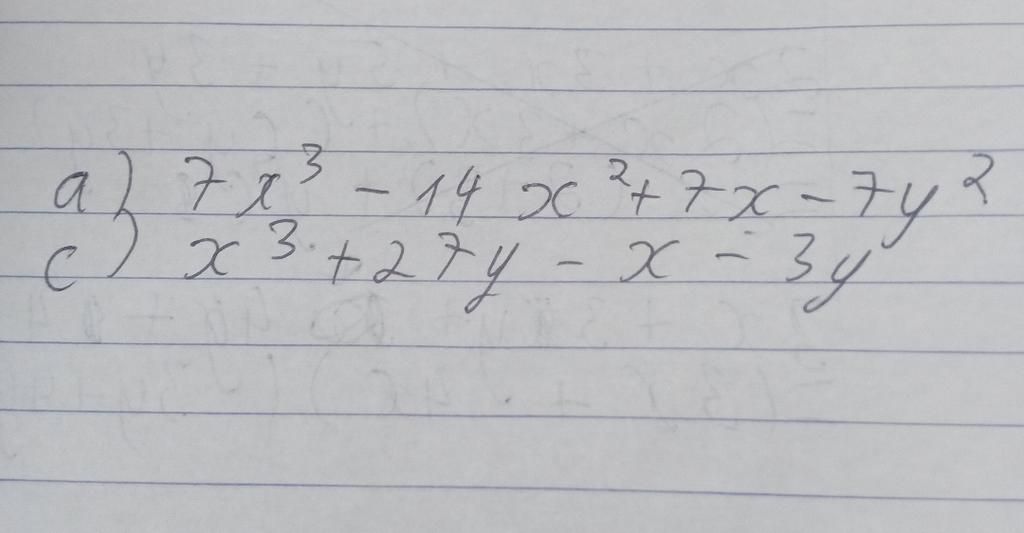 a) 7x³ - 14x² + 7x - 7y²
c) x³ + 27y - x - 3y